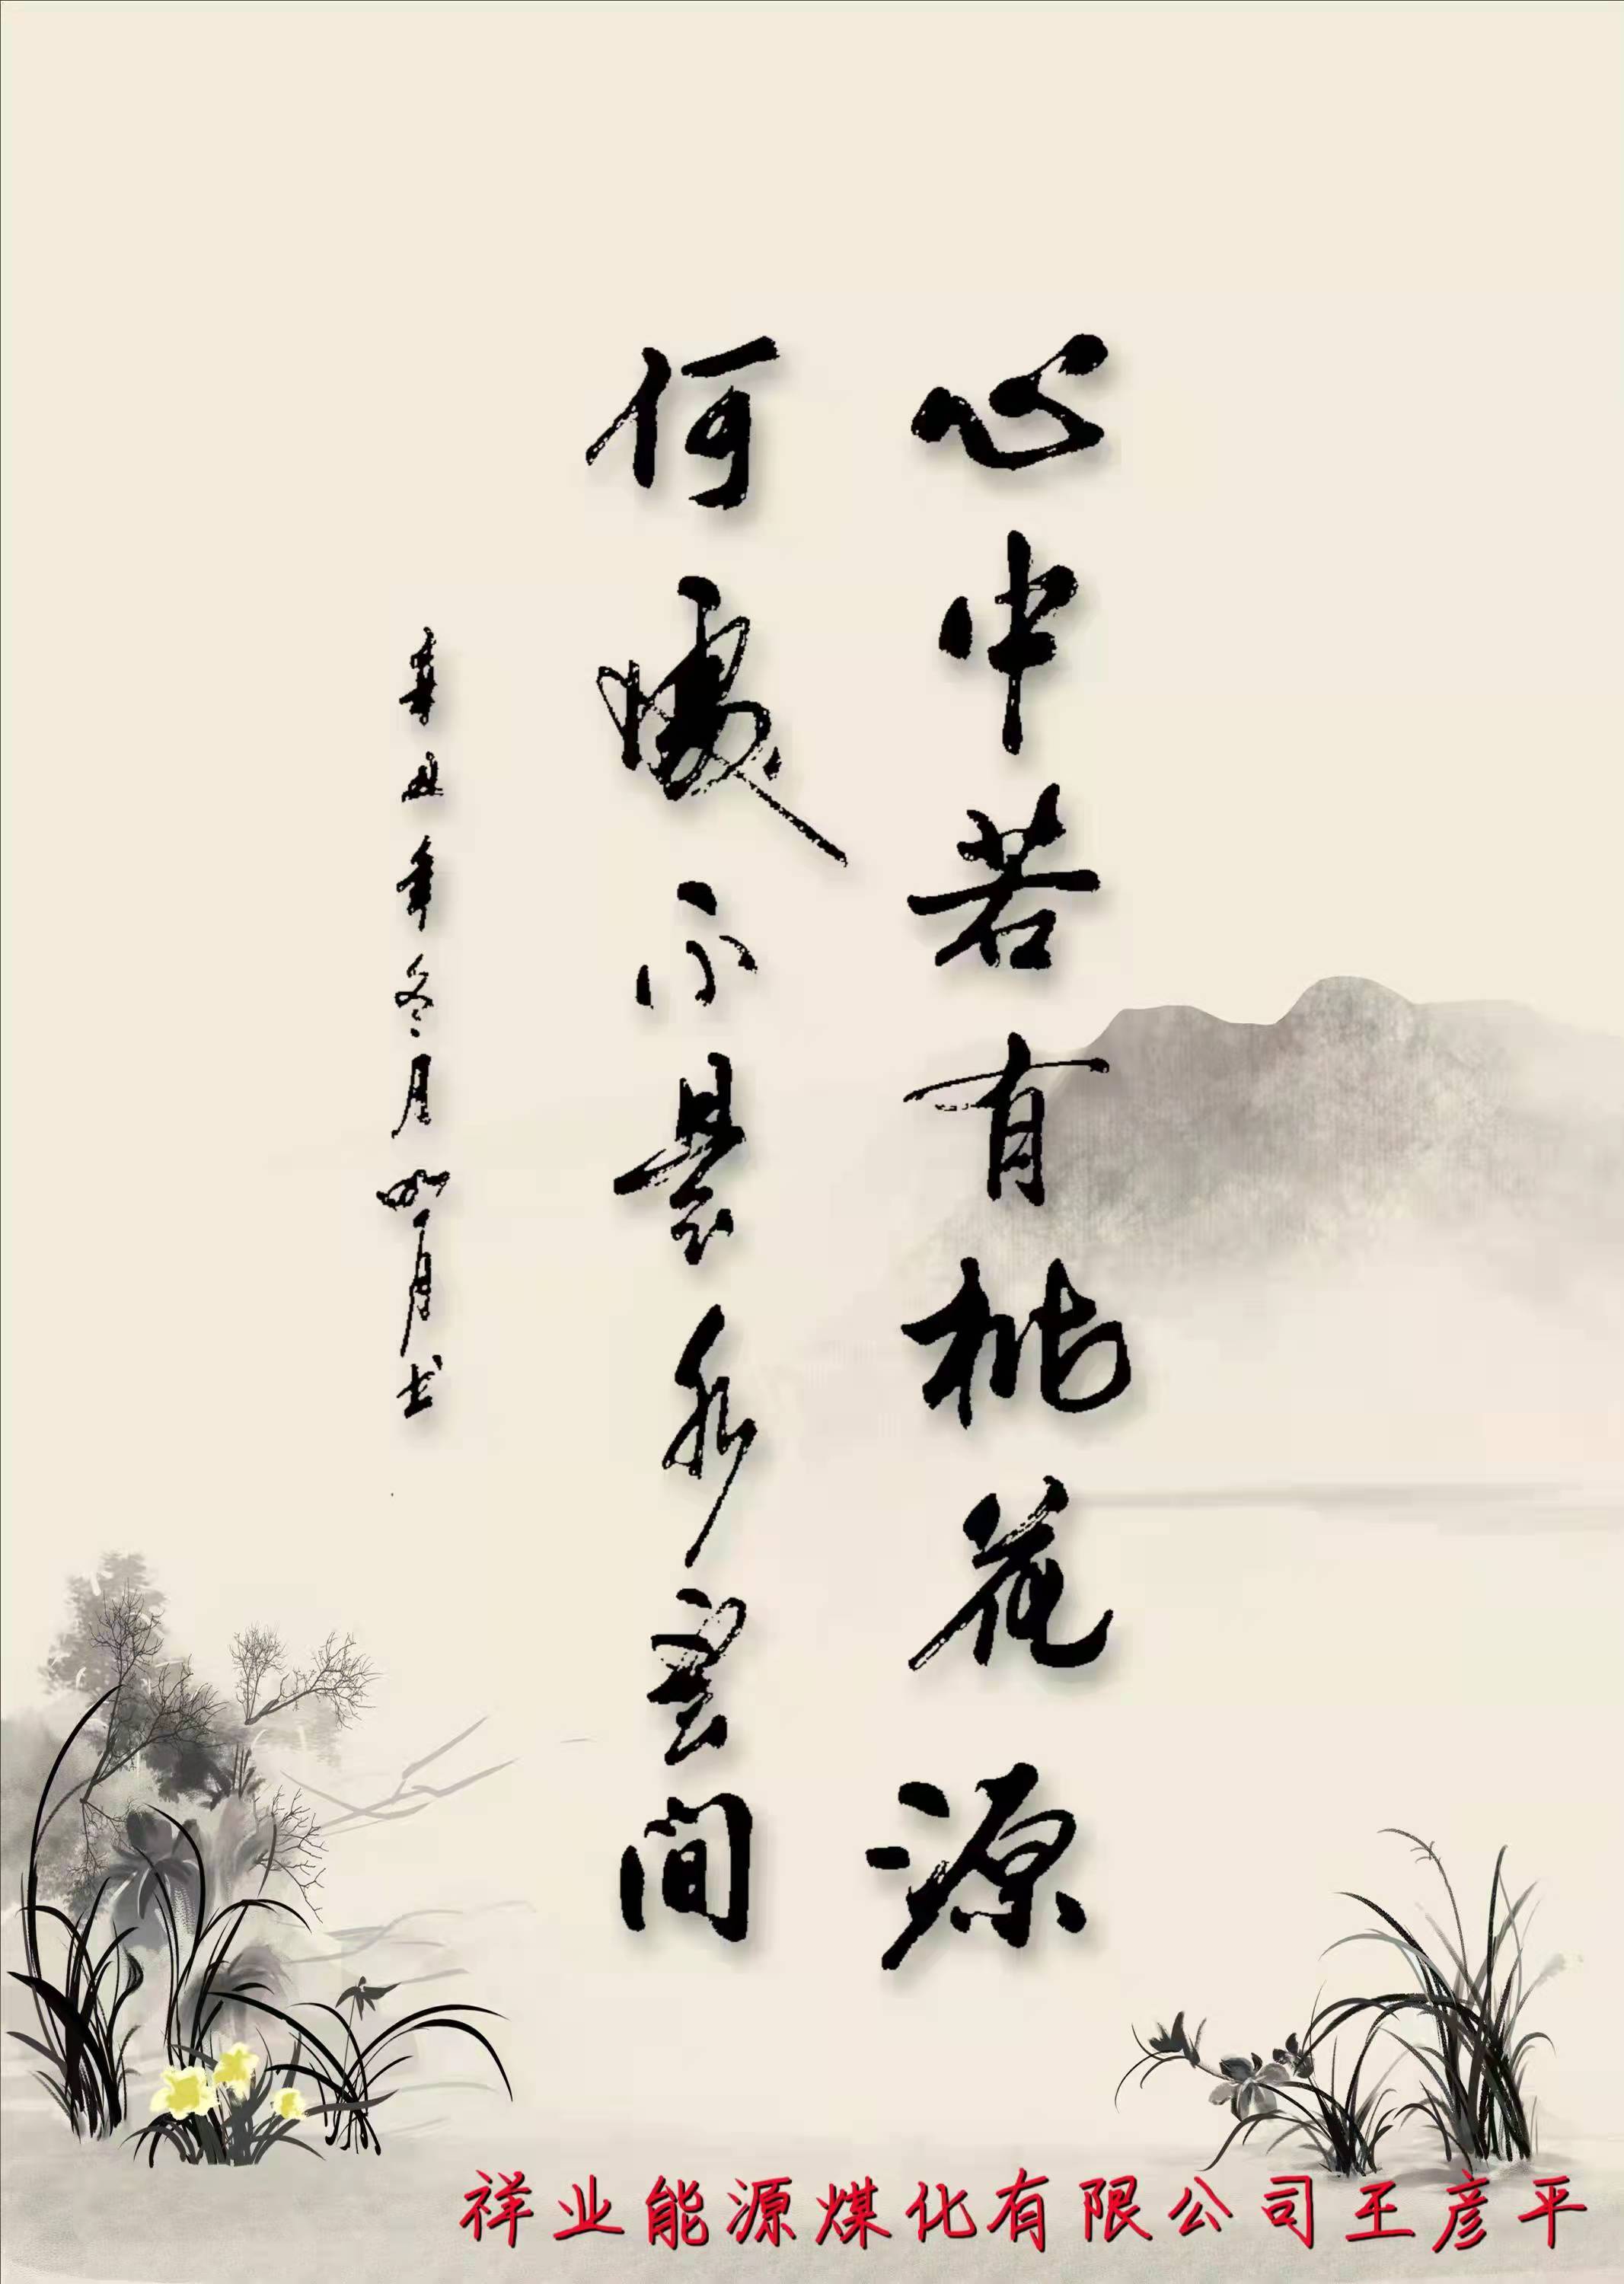 心中若有桃花源
何处不是水云间
辛丑年冬月明月书
祥业能源煤化有限公司王彦平